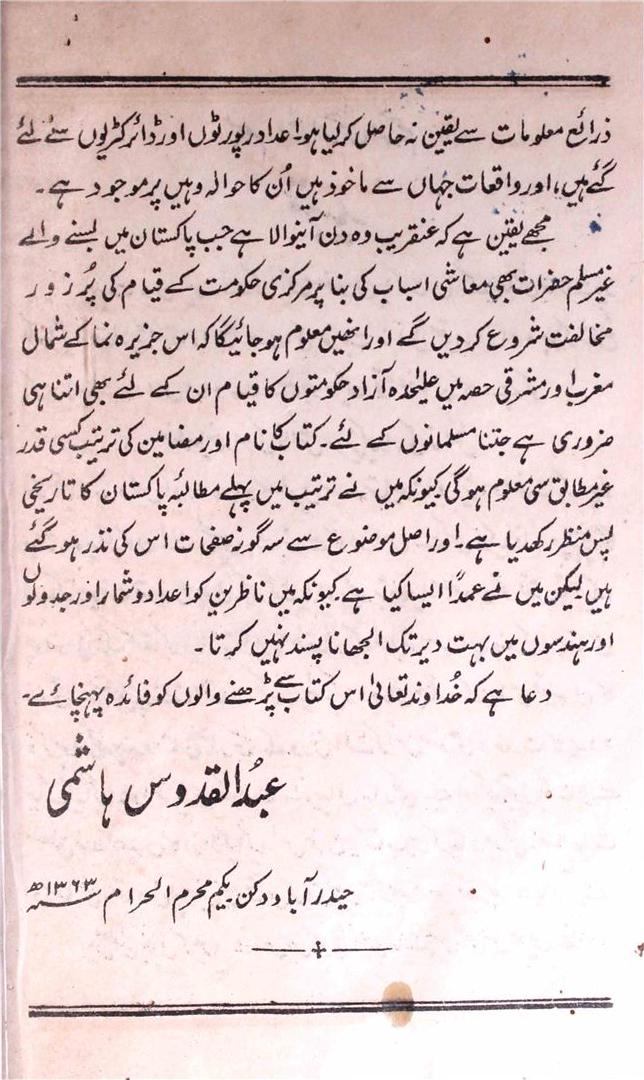 ذرائع معلومات سے یقین نہ حاصل کرلیا ہو۔ اعداد رپورٹوں اور ڈائرکٹریوں سے لئے
گئے ہیں، اور واقعات جہاں سے ماخوذ ہیں اُن کا حوالہ وہیں پر موجود ہے۔
مجھے یقین ہے کہ عنقریب وہ دن آنیوالا ہے جب پاکستان میں بسنے والے
غیر مسلم حضرات بھی معاشی اسباب کی بنا پر مرکزی حکومت کے قیام کی پُر زور
مخالفت شروع کردیں گے اور انھیں معلوم ہوجائیگا کہ اس جزیرہ نما کے شمال
مغرب اور مشرقی حصہ میں علیٰحدہ آزاد حکومتوں کا قیام ان کے لئے بھی اتنا ہی
ضروری ہے جتنا مسلمانوں کے لئے۔ کتاب کا نام اور مضامین کی ترتیب کسی قدر
غیر مطابق سی معلوم ہوگی کیونکہ میں نے ترتیب میں پہلے مطالبۂ پاکستان کا تاریخی
پس منظر رکھدیا ہے۔ اور اصل موضوع سے سہ گونہ صفحات اس کی نذر ہوگئے
ہیں لیکن میں نے عمداً ایسا کیا ہے کیونکہ میں ناظرین کو اعداد و شمار اور جدولوں
اور ہندسوں میں بہت دیر تک الجھانا پسند نہیں کرتا۔
دعا ہے کہ خُداوند تعالیٰ اس کتاب سے پڑھنے والوں کو فائدہ پہنچائے۔
عبدُ القدوس ہاشمی
حیدرآباد دکن یکم محرم الحرام سنہ ۱۳۶۳ھ